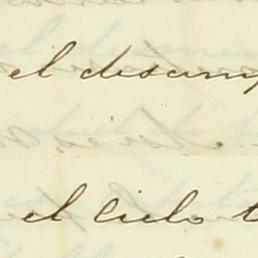 el descam
el cielo t